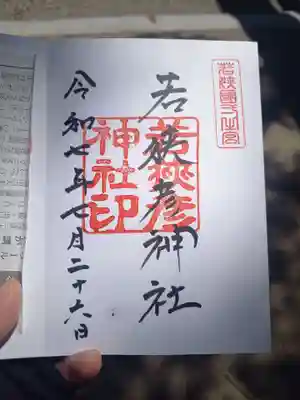 若狭國一之宮
若狭彦神社
若狭彦
神社印
令和七年七月二十六日